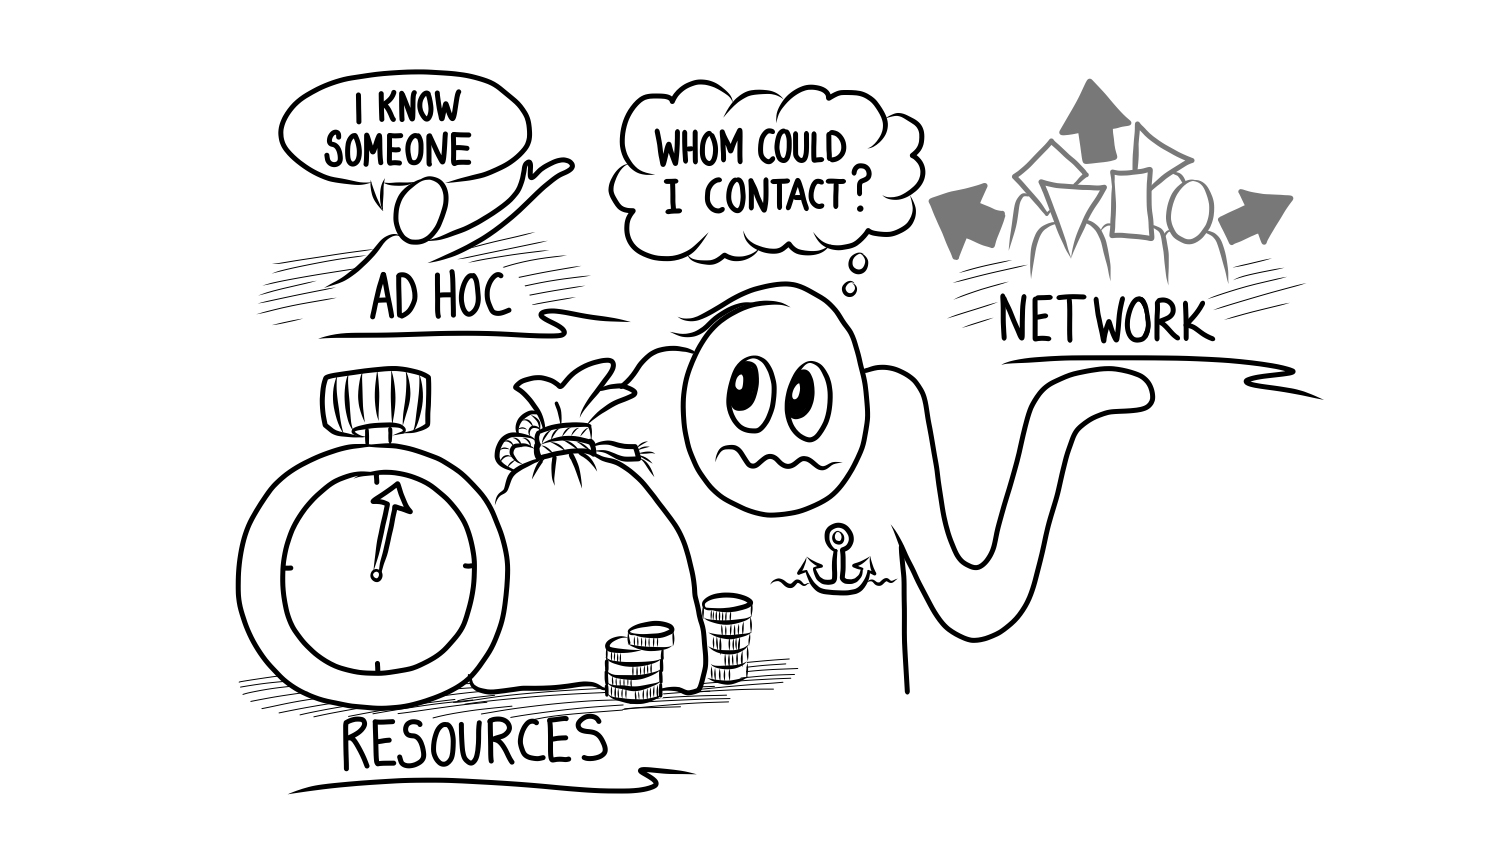 I KNOW
SOMEONE
AD HOC
WHOM COULD
I CONTACT?
NETWORK
RESOURCES